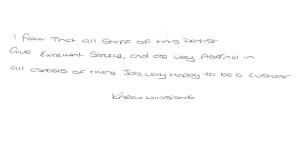 I feel That all Staff of this Dentist
Give Excellent Service, and are very
all aspects of there Job, very happy to be a customer